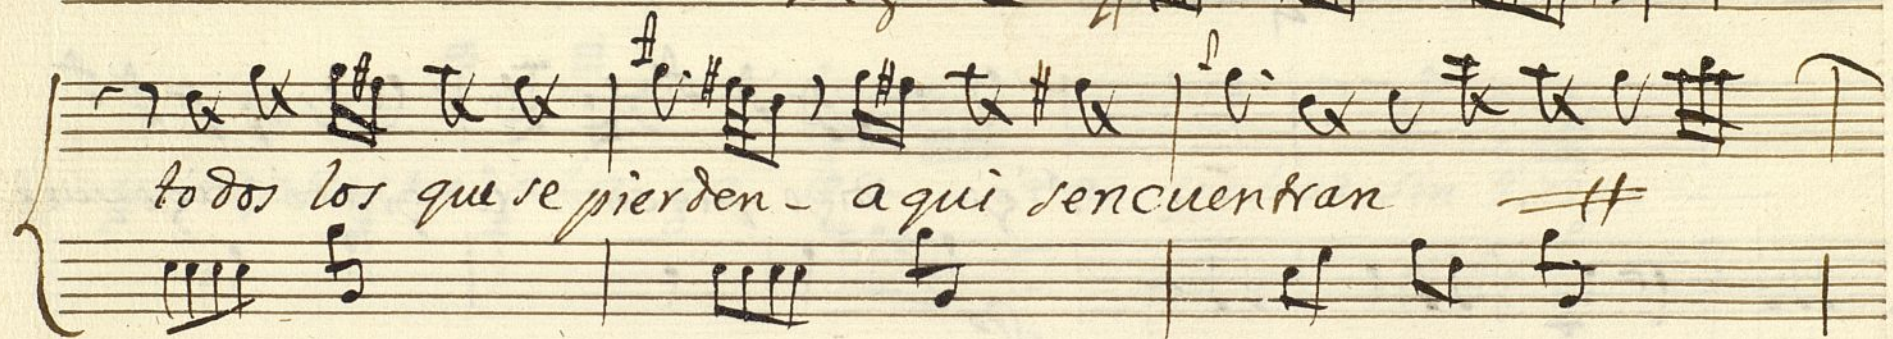 todos los que se pierden - a qui sencuentran